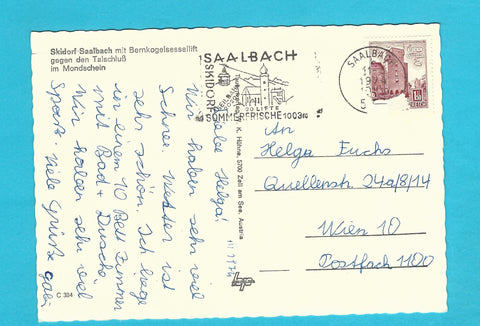 Skidorf Saalbach mit Bernkogelsessellift
gegen den Talschluß
im Mondschein
SAALBACH
SKIDORF
40 LIFTE
SOMMERFRISCHE 1003m
SAALBACH
Liebe Helga!
Wir haben sehr viel
Schnee. Wetter ist
sehr schön. Ich liege
in einem 10 Bett Zimmer
mit Bad + Dusche
Wir haben sehr viel
Spass. Viele Grüße Gabi
C 384
K. Hühne, 5700 Zell am See, Austria
An
Helga Fuchs
Quellenstr. 24a/8/14
Wien 10
Postfach 1100